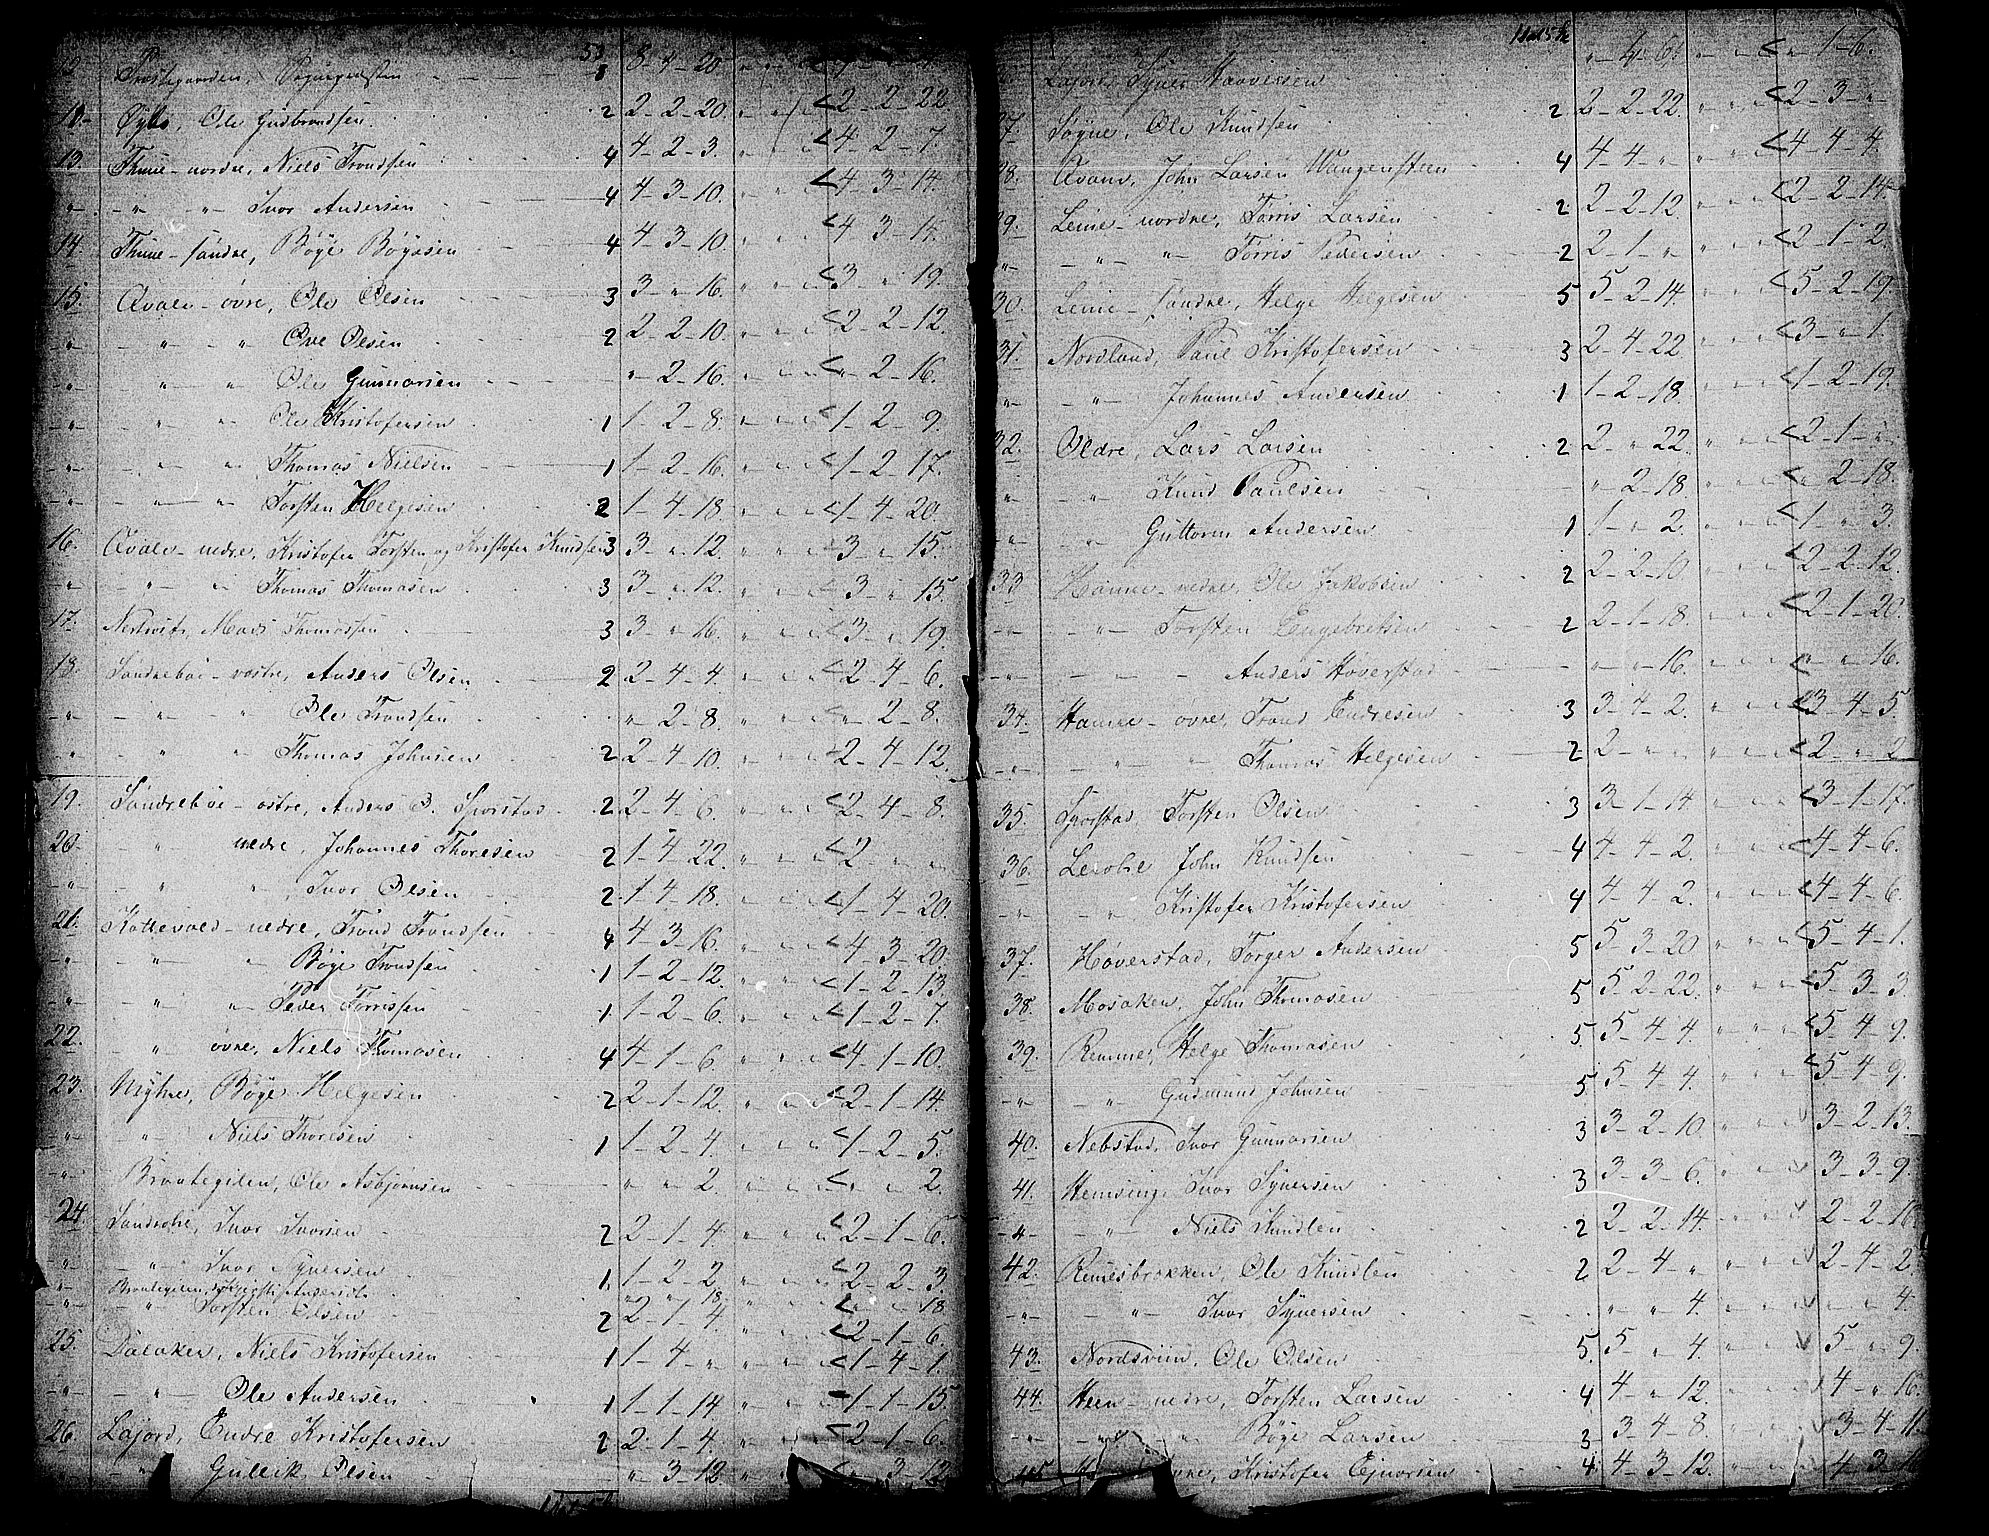 53
Præstegaarden, 8 8-4-20. " " "
18. Øylo, Ole Gudbrandsen. 2 2-2-20. " " " < 2-2-22
13. Thune-nordre, Niels Trondsen 4 4-2-3. " " " < 4-2-7.
" - " - " - Ivor Andersen 4 4-3-10. " " " < 4-3-14.
14. Thune-søndre, Bøye Bøyesen 4 4-3-10. " " " < 4-3-14.
15. Qvale-øvre, Ole Olsen 3 3-"-16. " " " < 3-"-19.
" - " - " Ove Olsen 2 2-2-10. " " " < 2-2-12.
" - " - " Ole Gunnarsen "-2-16. " " " < "-2-16.
" - " - " Ole Kristofersen 1 1-2-8. " " " < 1-2-9.
" - " - " Thomas Nielsen 1 1-2-16. " " " < 1-2-17.
" - " - " Torsten Helgesen 2 1-4-18. " " " < 1-4-20.
16. Qvale-nedre, Kristofer Torsten og Kristofer Knudsen 3 3-"-12. " " " < 3-"-15.
" - " - " Thomas Thomasen 3 3-"-12. " " " < 3-"-15.
17. Mads Thomassen 3 3-"-16. " " " < 3-"-19.
18. Søndreböe-vestre, Anders Olsen 2 2-4-4. " " " < 2-4-6.
" - " - " Ole Trondsen "-2-8. " " " < "-2-8.
" - " - " Thomas Johnsen 2 2-4-10. " " " < 2-4-12.
19. Søndreböe-østre, Anders O. Sporstad 2 2-4-6. " " " < 2-4-8.
20. " nedre, Johannes Thoresen 2 1-4-22. " " " < 2-"-"
" - " - " Ivor Olsen 2 1-4-18. " " " < 1-4-20.
21. Kattevold-nedre, Trond Trondsen 4 4-3-16. " " " < 4-3-20.
" - " - " Bøye Trondsen 1 1-2-12. " " " < 1-2-13.
" - " - " Peder Torrissen 1 1-2-6. " " " < 1-2-7.
22. " øvre, Niels Thomasen 4 4-1-6. " " " < 4-1-10.
23. Myhre, Bøye Helgesen 2 2-1-12. " " " < 2-1-14.
" - " Niels Thoresen 1 1-2-4. " " " < 1-2-5.
" Brøutegilen, Ole Asbjørnsen " " 2. " " " < " " 2.
24. Søndrolie, Ivor Ivorsen 2 2-1-4. " " " < 2-1-6.
" - " Ivor Syversen 1. 1-2-2. " " " < 2-2-3.
" Andersd. " " 18. < " " 18.
" - " Torsten Olsen 2 2-1-4. " " " < 2-1-6.
25. Dalaker, Niels Kristofersen 1 1-4-". " " " < 1-4-1.
" - " Ole Andersen 1 1-1-14 " " " 1-1-15.
26. Lajord, Endre Kristofersen 2 2-1-4. " " " < 2-1-6.
" - " Gullik Olsen "-3-12. " " " < "-3-12
Lajord, Syver Haaversen "-4-6. " " " < "-1-6.
27. Søyne, Ole Knudsen 2 2-2-22. " " " < 2-3-"
28. Qvam, John Larsen Wangensteen 4 4-4-" " " " < 4-4-4.
29. Leine-nordre, Torris Larsen 2 2-2-12. " " " < 2-2-14.
" - " - " Torris Pedersen 2 2-1-" " " " < 2-1-2.
30. Leine-søndre, Helge Helgesen 5 5-2-14. " " " < 5-2-19.
31. Nordland, Paul Kristofersen 3 2-4-22. " " " < 3-"-1.
" - " Johannes Andersen 1 1-2-18. " " " < 1-2-19.
32. Oldre, Lars Larsen 2 2-"-22. " " " < 2-1-"
" - " Knud Paulsen "-2-18. " " " < "-2-18.
" - " Guttorm Andersen 1 1-"-2. " " " < 1-"-3.
33. Hamre-nedre, Ole Jakobsen 2 2-2-10 " " " < 2-2-12.
" - " Torsten Engebretsen 2 2-1-18. " " " < 2-1-20.
" - " - " Anders Høverstad "-"-16. " " " < "-"-16.
34. Hamre-øvre, Trond Endresen 3 3-4-2. " " " < 3-4-5.
" - " - " Thomas Helgesen 2 2-"-" " " " < 2-"-2.
35. Sparstad, Torsten Olsen 3 3-1-14 " " " < 3-1-17.
36. Lerolie John Knudsen 4 4-4-2. " " " < 4-4-6.
" - " Kristofer Kristofersen 4 4-4-2. " " " < 4-4-6.
37. Høverstad, Torger Andersen 5 5-3-20 " " " < 5-4-1.
38. Mosaker, John Thomasen 5 5-2-22. " " " < 5-3-3.
39. Remme, Helge Thomasen 5. 5-4-4. " " " < 5-4-9.
" - " Gudmund Johnsen 5. 5-4-4. " " " < 5-4-9.
40. Nebstad, Ivor Gunnarsen 3 3-2-10. " " " 3-2-13.
41. Hemsing, Ivor Syversen 3 3-3-6. " " " 3-3-9.
" - " Niels Knudsen 2 2-2-14. " " " 2-2-16
42. Remesbrokken, Ole Knudsen 2 2-4-" " " " 2-4-2
" - " Ivor Syversen "-"-4. " " " "-"-4.
43. Nordsveen, Ole Olsen 5. 5-"-4. " " " 5-"-9.
44. Heen-nedre, Torsten Larsen 4 4-"-12. " " " 4-"-16.
" - " - " Bøye Larsen 3 3-4-8. " " " 3-4-11.
45. øvre, Kristofer Ejnarsen 4 4-3-12. " " " 4-3-